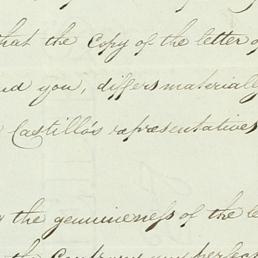 that the Copy of the letter
you, differs materially
Castillo's representatives
the genuineness of the
the